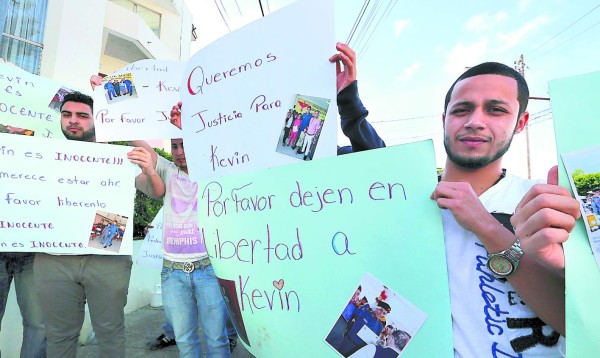 Kevin es
INOCENTE
in es INOCENTE!!!
merece estar
favor liberenlo
INOCENTE
es INOCENTE
Libertad
Kevin
Por Favor
Queremos
Justicia Para
Kevin
Por Favor dejen en
Libertad a
Kevin
MEMPHIS
Athletic